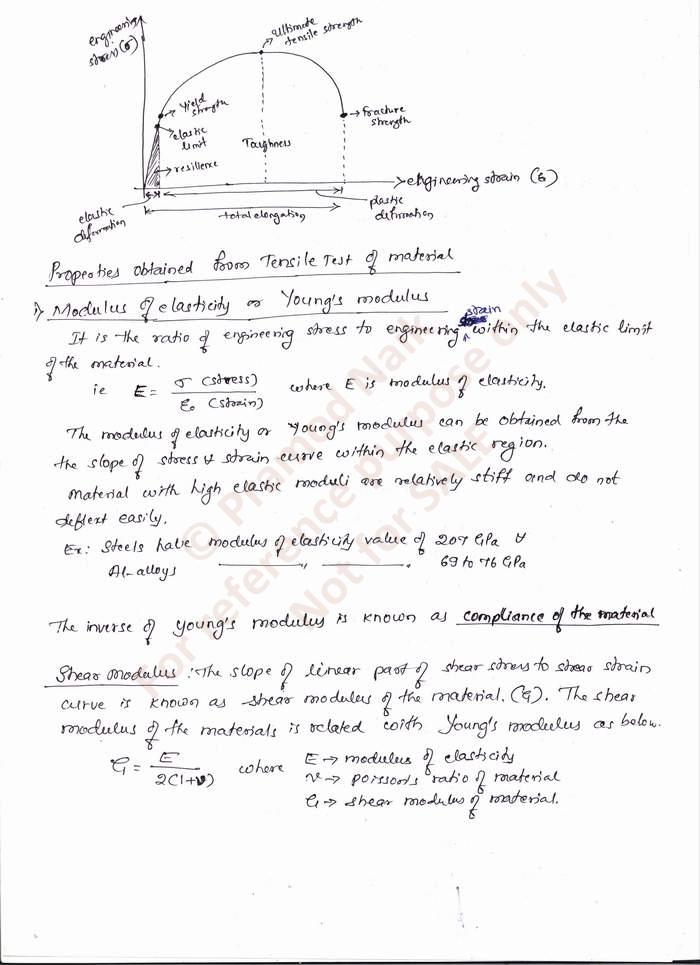 engineering
stress (σ)
Ultimate
tensile strength
Yield
strength
elastic
limit
resilience
Toughness
fracture
strength
engineering strain (ε)
elastic
deformation
total elongation
plastic
deformation
Properties obtained from Tensile Test of material
1) Modulus of elasticity or Young's modulus
It is the ratio of engineering stress to engineering strain within the elastic limit
of the material.
ie E = σ (stress) / ε₀ (strain) where E is modulus of elasticity.
The modulus of elasticity or Young's modulus can be obtained from the
the slope of stress & strain curve within the elastic region.
Material with high elastic moduli are relatively stiff and do not
deflext easily.
Ex: Steels have modulus of elasticity value of 207 GPa &
Al-alloys —— " —— " —— 69 to 76 GPa
The inverse of Young's modulus is known as compliance of the material
Shear modulus: The slope of linear part of shear stress to shear strain
curve is known as shear modulus of the material. (G). The shear
modulus of the materials is related with Young's modulus as below.
G = E / 2(1+ν) where E → modulus of elasticity
ν → poisson's ratio of material
G → shear modulus of material.
© Pramod Naik
for reference purpose only
Not for SALE